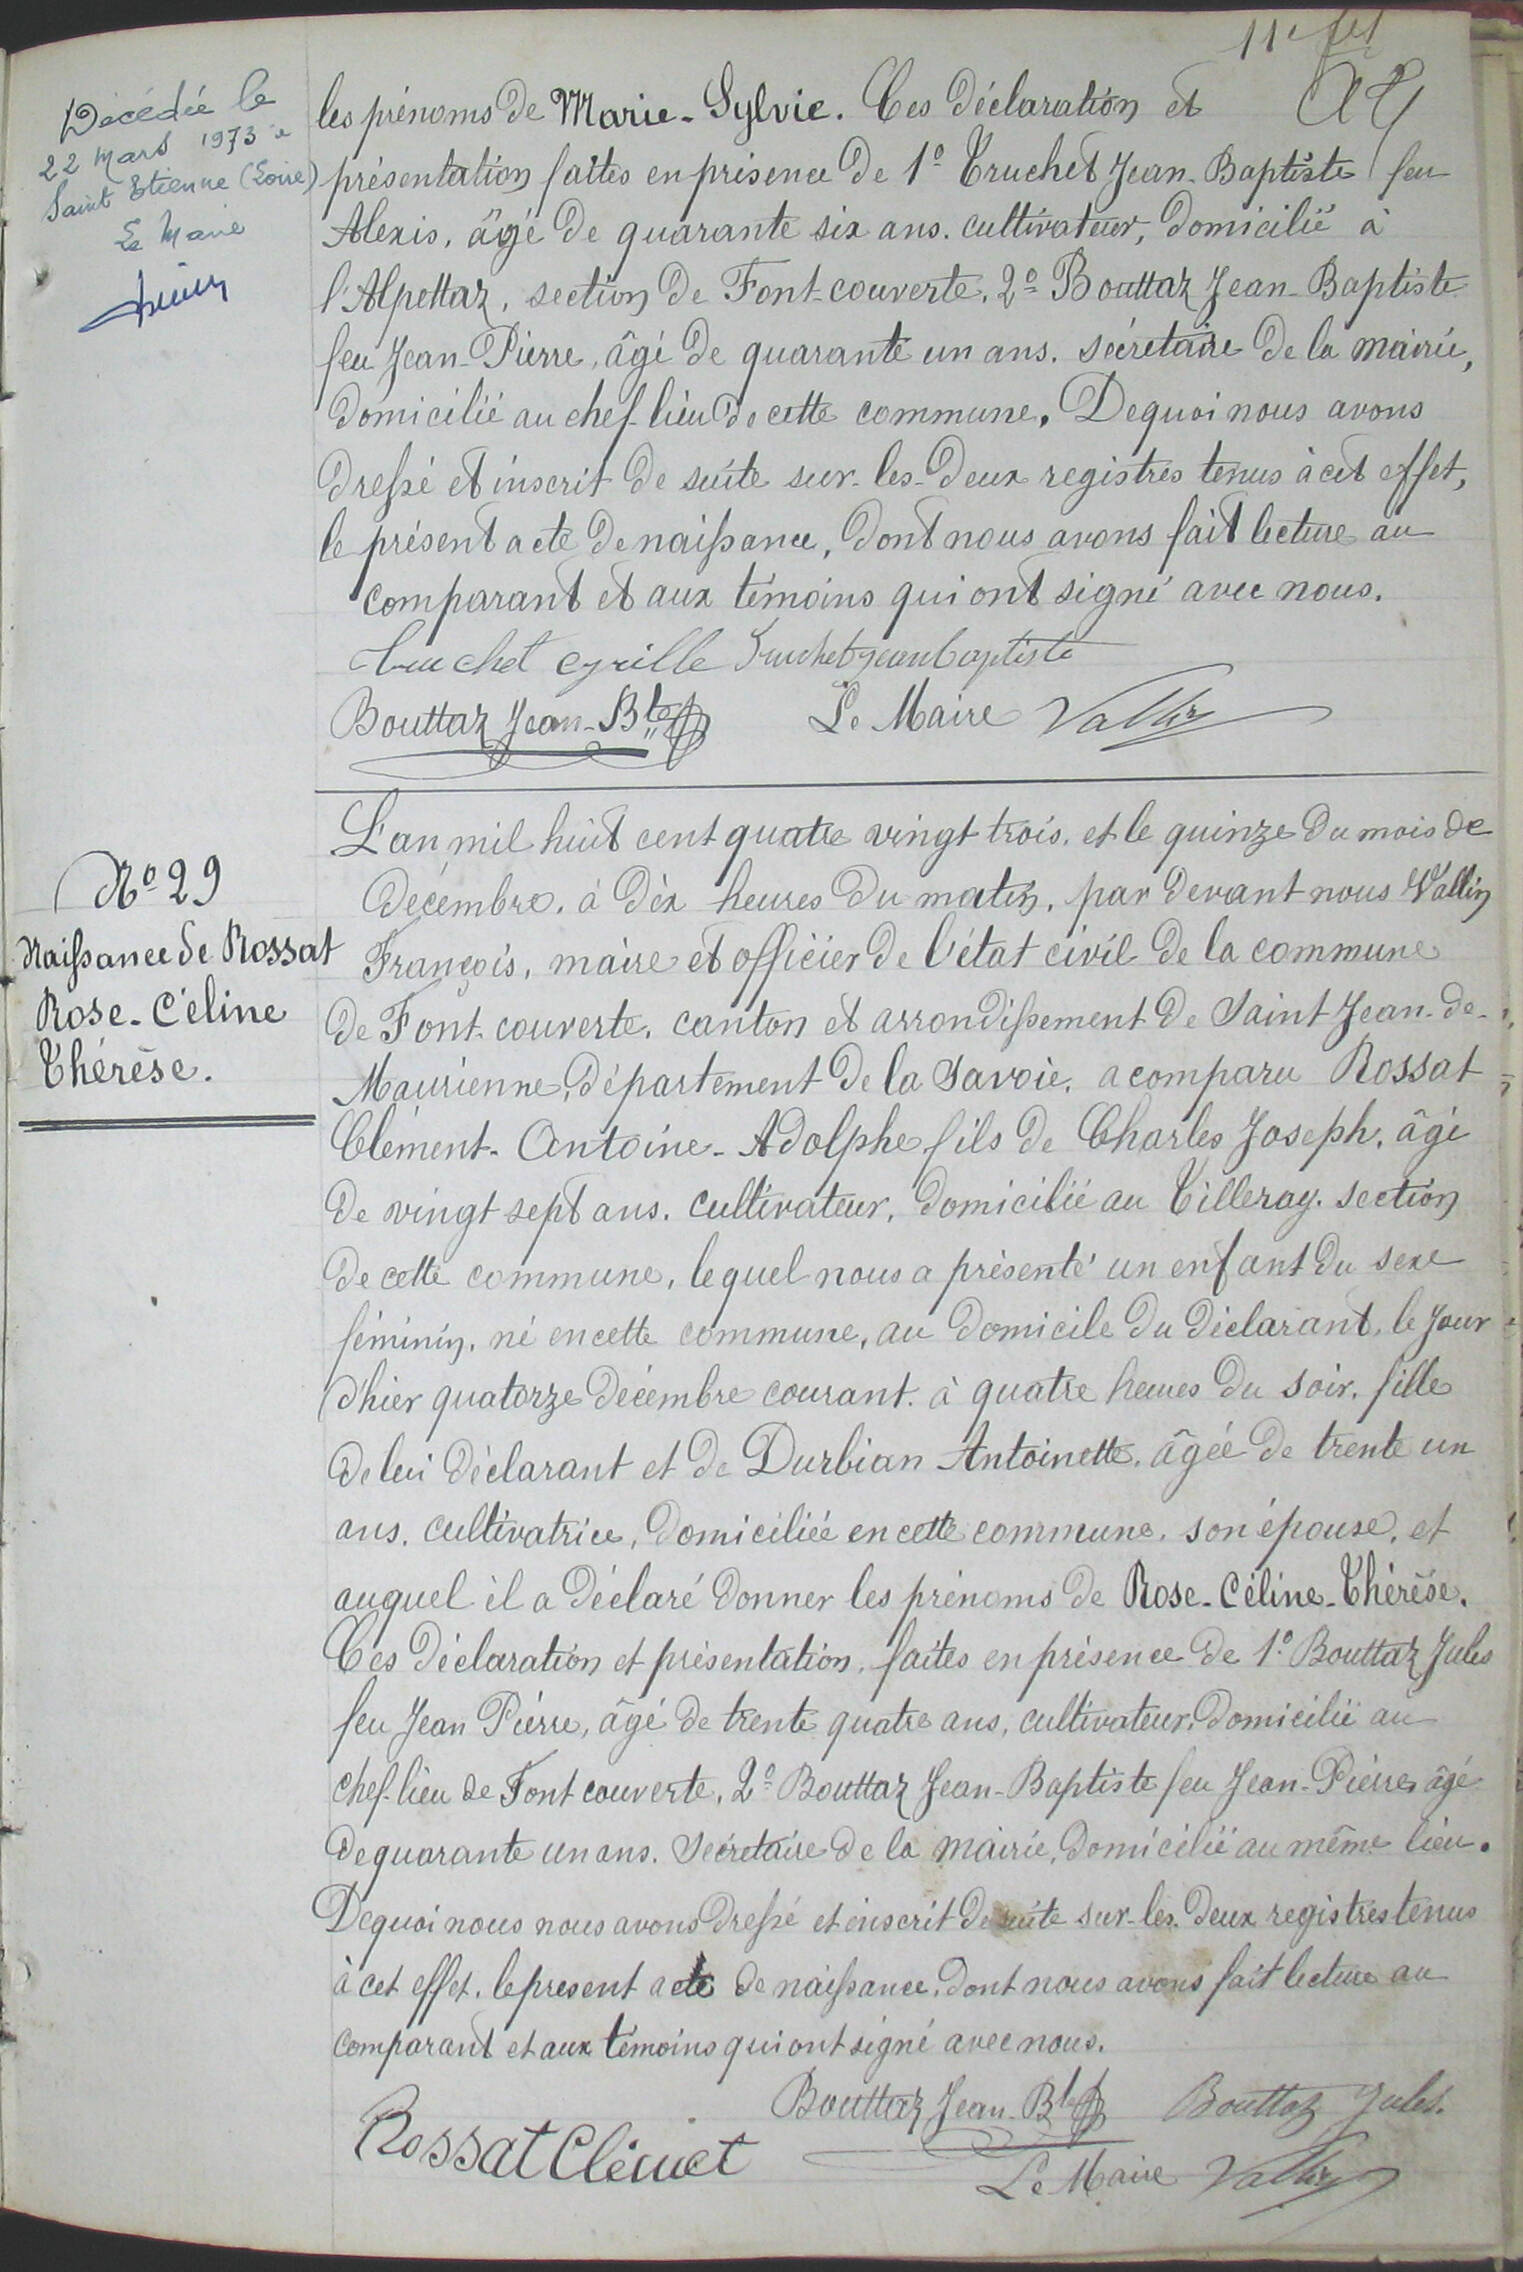 11e fet
Décédée le
22 Mars 1973 à
Saint Etienne (Loire)
Le Maire
les prénoms de Marie-Sylvie. Ces déclaration et
présentation faites en présence de 1º Truchet Jean-Baptiste feu
Alexis, âgé de quarante six ans. cultivateur, domicilié à
l'Alpettaz, section de Font-couverte. 2º Bouttaz Jean-Baptiste
feu Jean-Pierre, âgé de quarante un ans. sécretaire de la mairie,
domicilié au chef-lieu de cette commune. Dequoi nous avons
dressé et inscrit de suite sur-les-deux registres tenus à cet effet,
le présent acte de naissance, dont nous avons fait lecture au
comparant et aux témoins qui ont signé avec nous.
truchet cyrille Truchet jean baptiste
Bouttaz Jean-Bte Le Maire Vallin
Nº 29
Naissance de Rossat
Rose-Céline
Thérèse.
L'an mil huit cent quatre vingt trois. et le quinze du mois de
décembre. à dix heures du matin. par devant nous Vallin
François, maire et officier de l'état civil de la commune
de Font-couverte. canton et arrondissement de Saint Jean-de-
Maurienne, département de la Savoie. a comparu Rossat
Clément-Antoine-Adolphe fils de Charles Joseph. âgé
de vingt sept ans. cultivateur, domicilié au Tilleray. section
de cette commune, lequel nous a présenté un enfant du sexe
féminin. né en cette commune, au domicile du déclarant, le jour
d'hier quatorze décembre courant. à quatre heures du soir. fille
de lui déclarant et de Durbian Antoinette. âgée de trente un
ans. cultivatrice, domiciliée en cette commune. son épouse. et
auquel il a déclaré donner les prénoms de Rose-Céline-Thérèse.
Ces déclaration et présentation, faites en présence de 1º Bouttaz Jules
feu Jean Pierre, âgé de trente quatre ans, cultivateur, domicilié au
chef-lieu de Font couverte. 2º Bouttaz Jean-Baptiste feu Jean-Pierre, âgé
de quarante un ans. Sécretaire de la mairie, domicilié au même lieu.
Dequoi nous nous avons dressé et inscrit de suite sur-les-deux registres tenus
à cet effet. le present acte de naissance, dont nous avons fait lecture au
comparant et aux témoins qui ont signé avec nous.
Bouttaz Jean-Bte Bouttaz Jules.
Rossat Clémet
Le Maire Vallin